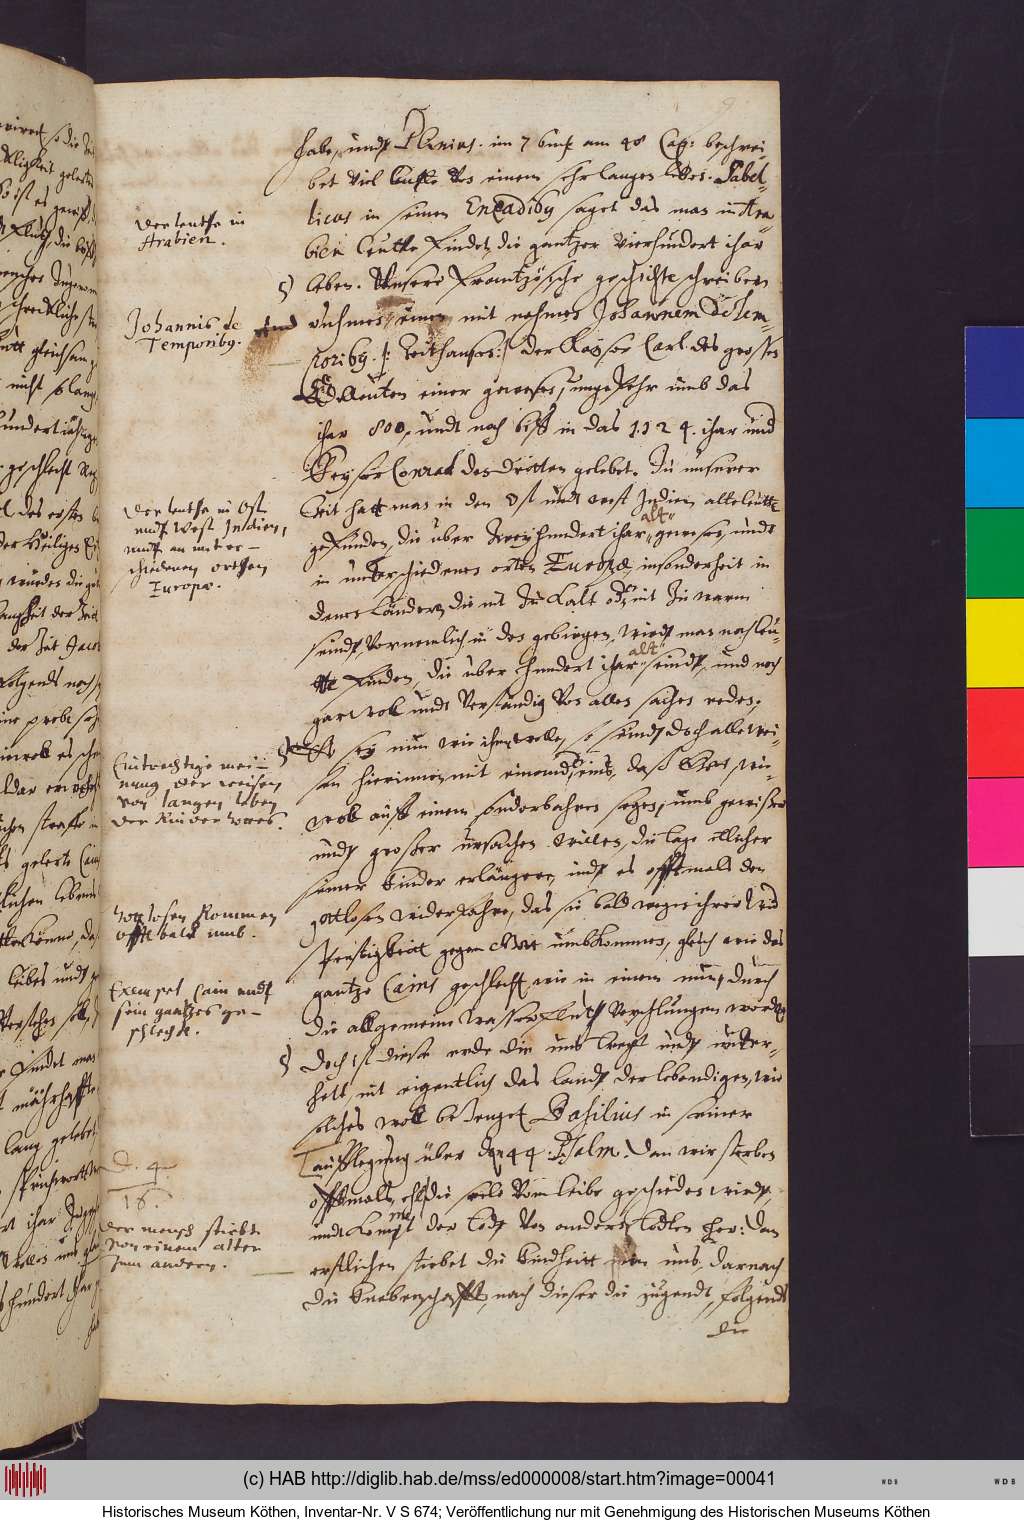 habe, undt Plinius. im 7 buch am 48 Cap: beschrei-
bet viel leutte von einem sehr langen leben. Sabel-
licus in seinen Eneadibus saget das man in Ara
bien leutte findet, die gantzer vierhundert ihar
leben. Unsere Frantzösische geschichtschreiber
ruhmen einen mit nahmen Johannem de Tem-
poribus. der Kayser Carl des grossen
einer gewesen, ungefehr umb das
ihar 800, undt noch biß in das 1124. ihar und
Keyser Conrad des dritten gelebet. Zu unserer
Zeit hatt man in den Ost undt west Indien alte leutte
gefunden, die über zweyhundert ihar alt gewesen, undt
in unterschiedenen orten Europæ, insonderheit in
denen Ländern, die nit zu kalt oder nit zu warm
seindt, vornemlich in den gebirgen, wirdt man noch leu-
tte finden, die über hundert ihar alt seindt, und noch
gar woll undt verstendig von allen sachen reden.
Es sey nun wie ihm wolle, so seindt doch alle wei-
sen hierinnen mit einander eins, daß Gott, wie-
woll auß einem sonderbahren segen, umb gewißer
undt großer ursachen willen, die tage etlicher
seiner kinder erlängere, undt es offtmals den
gottlosen widerfahre, das sie bald wegen ihrer Wid
spenstigkeit gegen Gott umbkommen, gleich wie das
gantze Cains geschlecht, wie in einem nun, durch
die allgemeine Wasserfluth verschlungen worden
Doch ist diese erde die uns tregt undt unter-
helt, nit eigentlich das landt der lebendigen, wie
solches woll bezeuget Basilius in seiner
Außlegung über den 44. Psalm. Dan wir sterben
offtmals, ehe die sele vom leibe geschieden wirdt,
undt kompt der todt von andern todten her: dan
erstlichen stirbet die kindheitt in uns, darnach
die knabenschafft, nach dieser die jugendt, folgends
die
der leuthe in
Arabien.
Johannis de
Temporibus.
der leuthe in Ost
undt West Indien,
undt an unter-
schiedenen orthen
Europæ.
Eintrechtige mei-
nung der weisen
von langen leben
der Kinder Gottes.
Gottlosen kommen
offt bald umb.
Exempel Cain undt
sein gantzes ge-
schlecht.
16.
der mensch stirbt
von einem alter
zum andern.
(c) HAB http://diglib.hab.de/mss/ed000008/start.htm?image=00041
WDB
WDB
Historisches Museum Köthen, Inventar-Nr. V S 674; Veröffentlichung nur mit Genehmigung des Historischen Museums Köthen